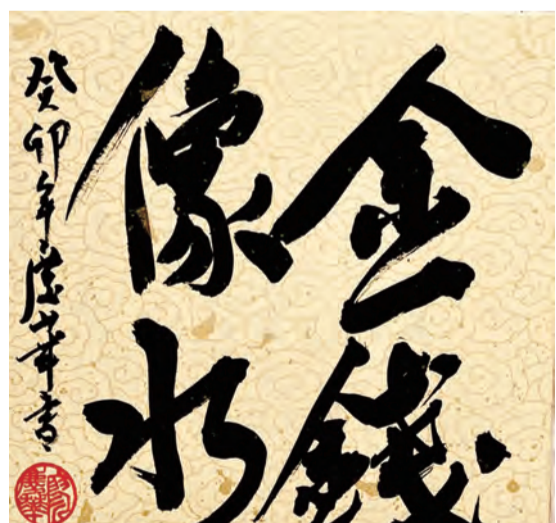 金錢
像水
癸卯年慶華書